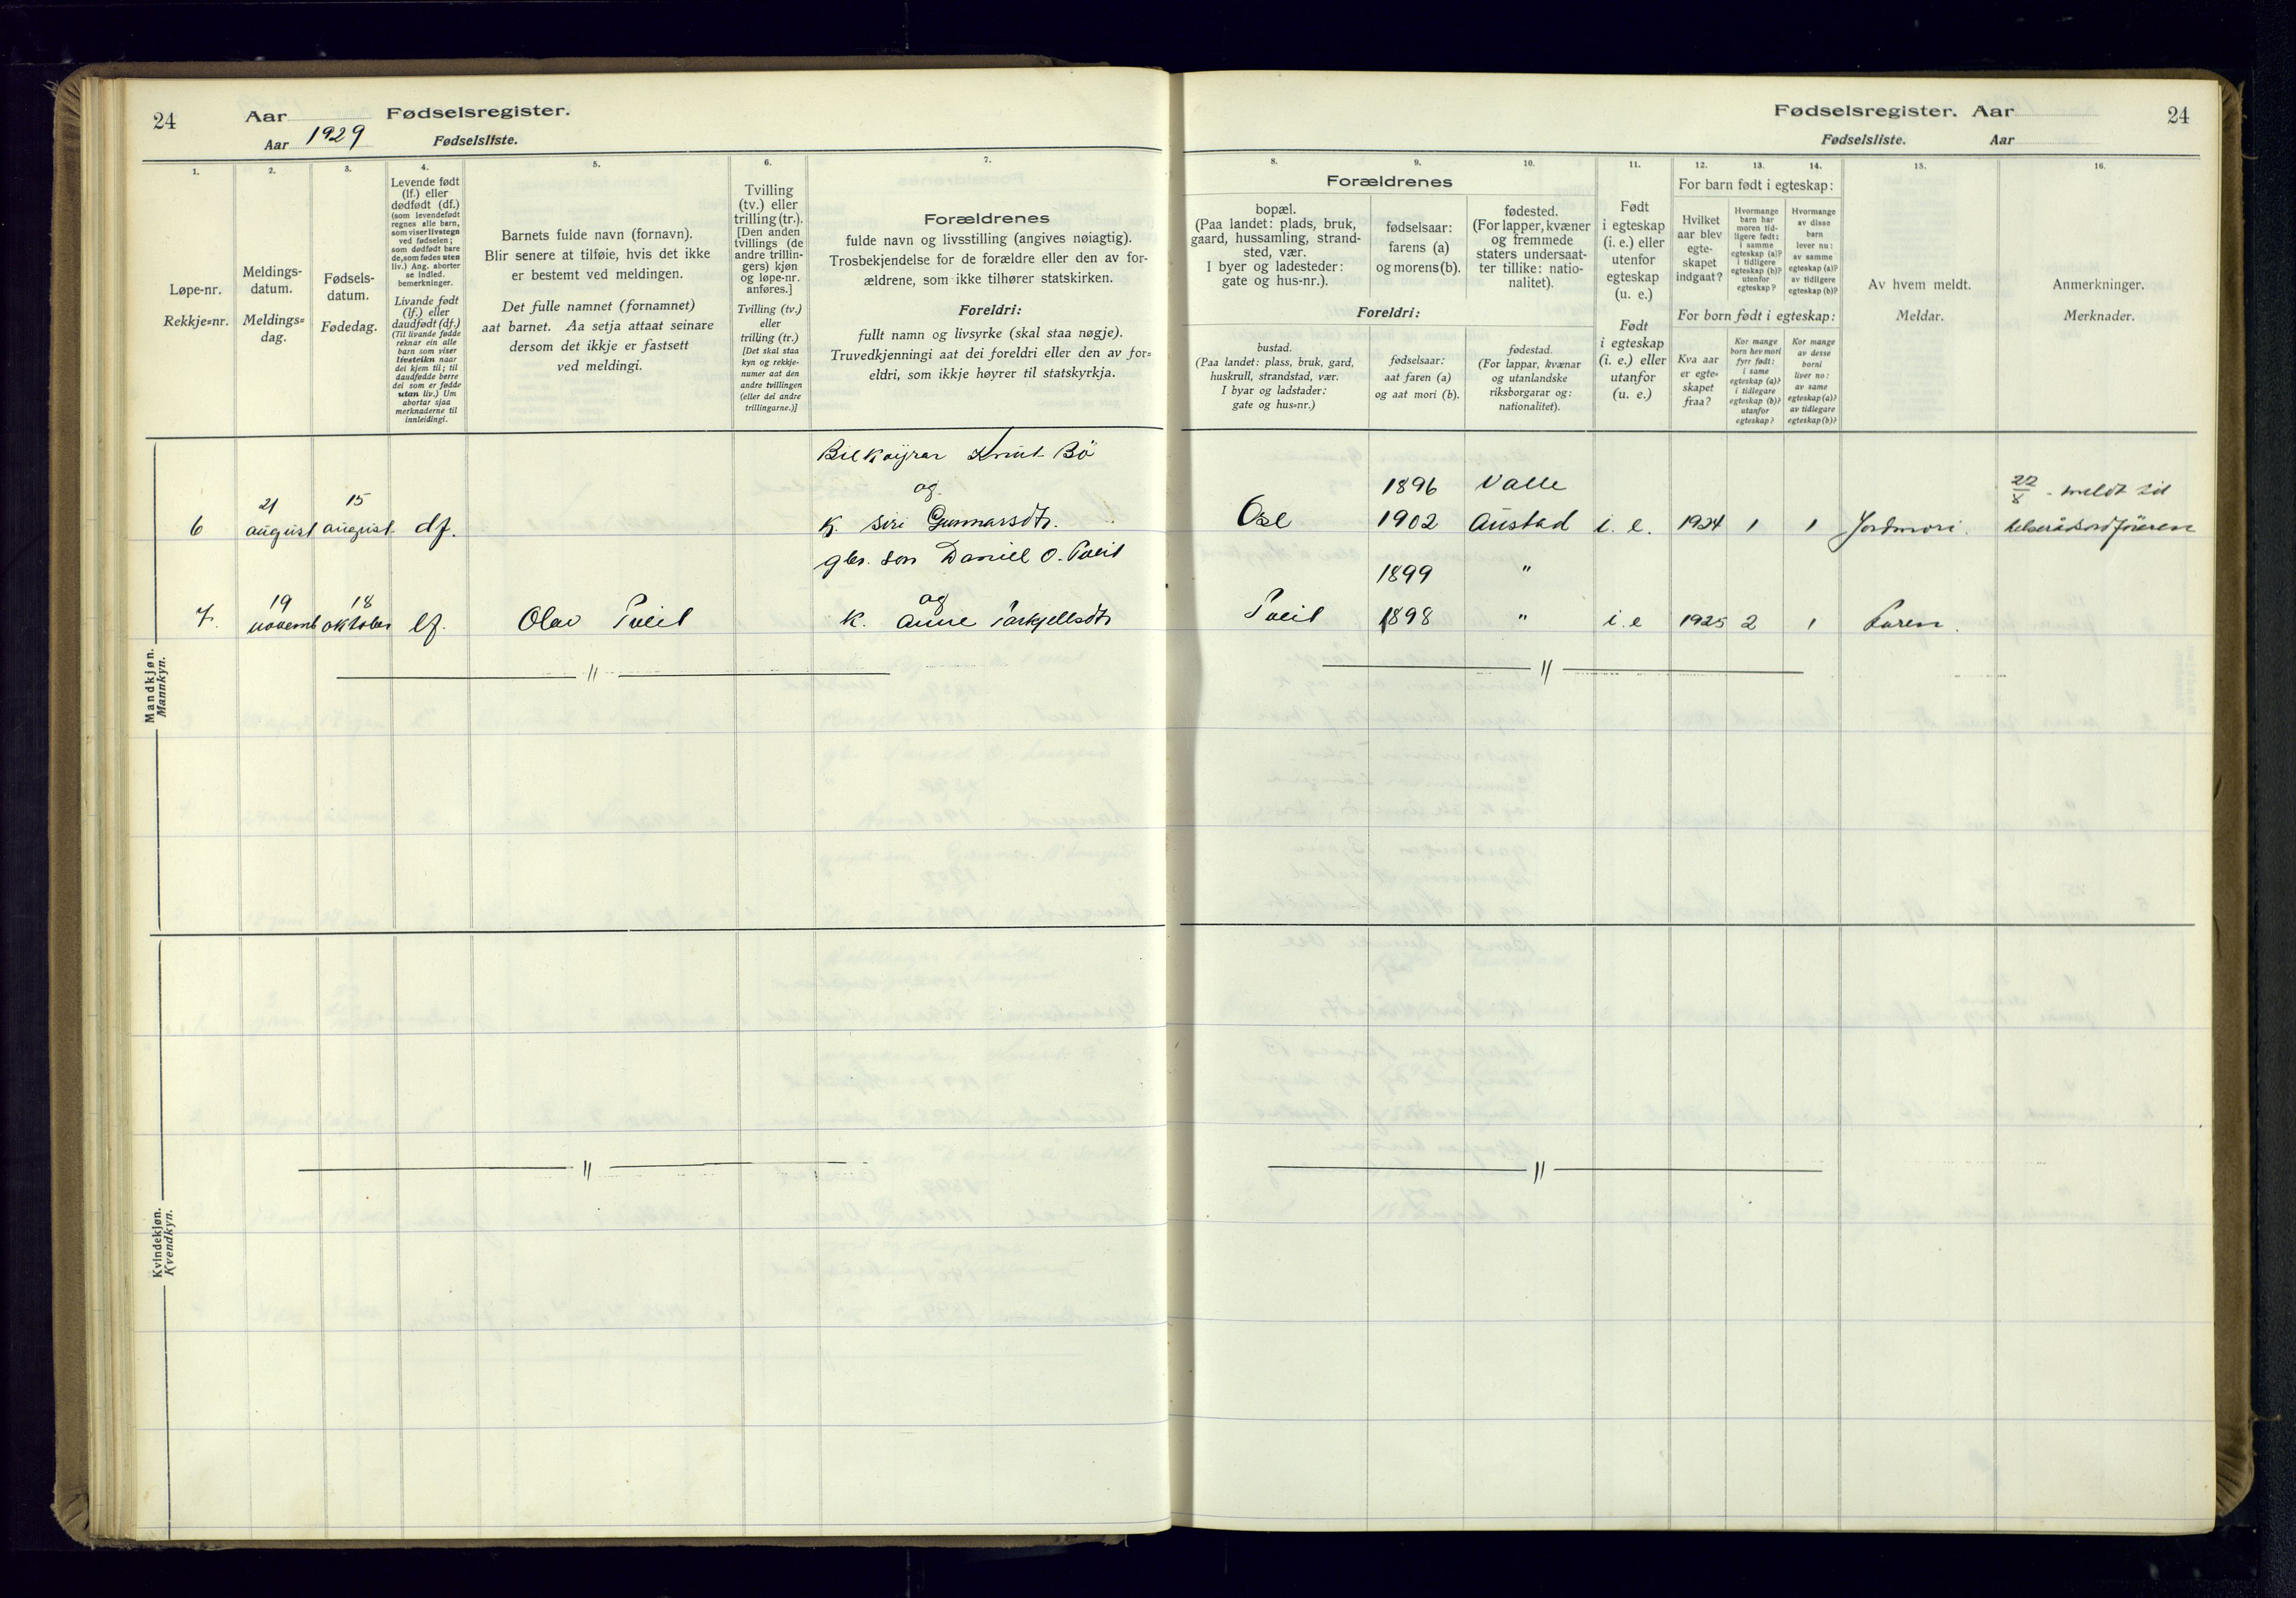 24
Aar
Fødselsregister.
Aar 1929
Fødselsliste.
Fødselsregister. Aar
24
Fødselsliste.
Aar
1.
Løpe-nr.
Rekkje=nr.
2.
Meldings-
datum.
Meldings=
dag.
3.
Fødsels-
datum.
Fødedag.
4.
Levende født
(lf.) eller
dødfødt (df.)
(som levendefødt
regnes alle barn,
som viser livstegn
ved fødselen;
som dødfødt bare
de, som fødes uten
liv.) Ang. aborter
se indled.
bemerkninger.
Livande født
(lf.) eller
daudfødt (df.)
(Til livande fødde
reknar ein alle
barn som viser
livsteikn naar
dei kjem til; til
daudfødde berre
dei som er fødde
utan liv.) Um
abortar sjaa
merknaderne til
innleidingi.
5.
Barnets fulde navn (fornavn).
Blir senere at tilføie, hvis det ikke
er bestemt ved meldingen.
Det fulle namnet (fornamnet)
aat barnet. Aa setja attaat seinare
dersom det ikkje er fastsett
ved meldingi.
6.
Tvilling
(tv.) eller
trilling (tr.).
[Den anden
tvillings (de
andre trillin-
gers) kjøn
og løpe-nr.
anføres.]
Tvilling (tv.)
eller
trilling (tr.)
[Det skal staa
kyn og rekkje-
numer aat den
andre tvillingen
(eller dei andre
trillingarne.)]
7.
Forældrenes
fulde navn og livsstilling (angives nøiagtig).
Trosbekjendelse for de forældre eller den av for-
ældrene, som ikke tilhører statskirken.
Foreldri:
fullt namn og livsyrke (skal staa nøgje).
Truvedkjenningi aat dei foreldri eller den av for=
eldri, som ikkje høyrer til statskyrkja.
8.
9.
10.
Forældrenes
bopæl.
(Paa landet: plads, bruk,
gaard, hussamling, strand-
sted, vær.
I byer og ladesteder:
gate og hus-nr.).
fødselsaar:
farens (a)
og morens (b).
fødested.
(For lapper, kvæner
og fremmede
staters undersaat-
ter tillike: natio-
nalitet).
Foreldri:
bustad.
(Paa landet: plass, bruk, gard,
huskrull, strandstad, vær.
I byar og ladstader:
gate og hus=nr.)
fødselsaar:
aat faren (a)
og aat mori (b).
fødestad.
(For lappar, kvænar
og utanlandske
riksborgarar og:
nationalitet).
11.
Født
i egteskap
(i. e.) eller
utenfor
egteskap
(u. e.)
Født
i egteskap
(i. e.) eller
utanfor
(u. e.)
12.
13.
14.
For barn født i egteskap:
Hvilket
aar blev
egte-
skapet
indgaat?
Hvormange
barn har
moren tid-
ligere født:
i samme
egteskap (a)?
i tidligere
egteskap (b)?
utenfor
egteskap?
Hvormange
av disse
barn
lever nu:
av samme
egteskap (a)?
av tidligere
egteskap (b)?
For born født i egteskap:
Kva aar
er egte-
skapet
fraa?
Kor mange
born hev mori
fyrr født:
i same
egteskap (a)?
i tidlegare
egteskap (b)?
utanfor
egteskap?
Kor mange
av desse
borni
liver no:
av same
egteskap (a)?
av tidlegare
egteskap (b)?
15.
Av hvem meldt.
Meldar.
16.
Anmerkninger.
Merknader.
Mandkjøn.
Mannkyn.
6
21
august
15
august
df.
Bilkøyrar Knut Bö
og
k. Siri Gunnarsdtr.
Ose
1896
1902
Valle
Austad
i. e.
1924
1
1
Jordmori.
22/8 meldt til
helserådsordföreren
7.
19
novemb
18
oktober
lf.
Olav Tveit
gbr. son Daniel O. Tveit
og
k. Anne Tarkjellsdtr
Tveit
1899
1898
"
"
i. e
1925
2
1
Faren.
Kvindekjøn.
Kvendkyn.